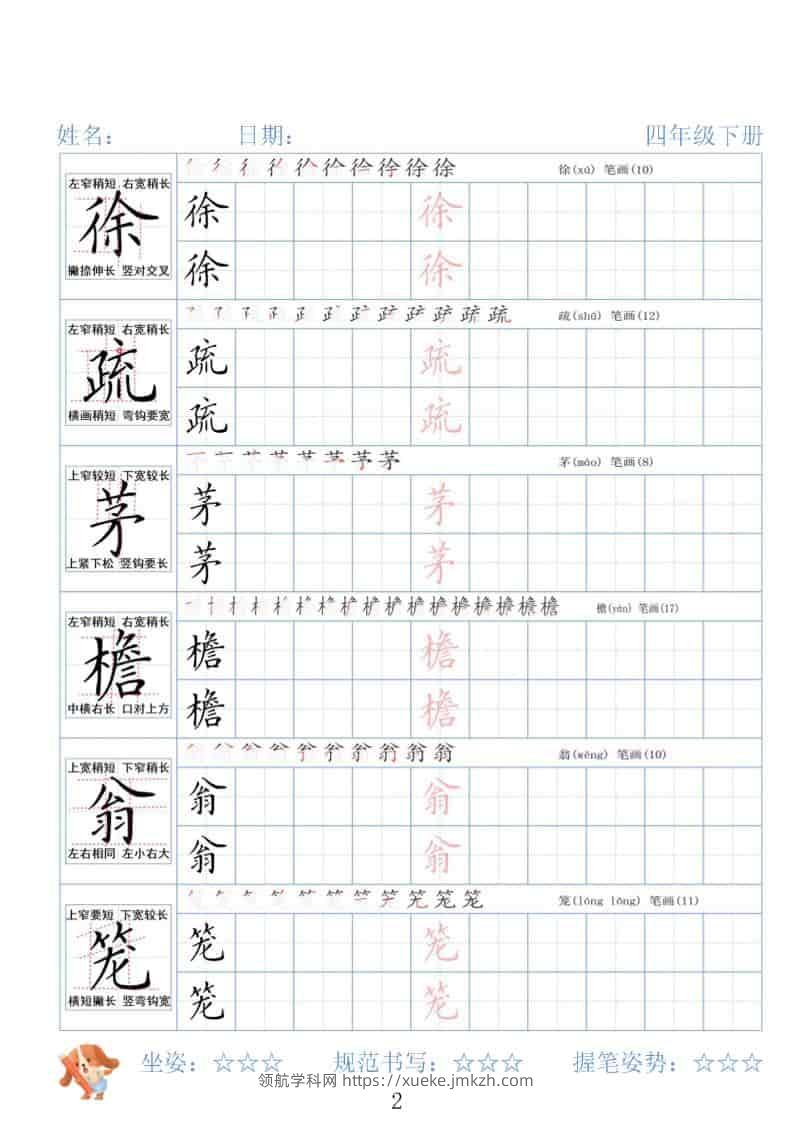 姓名： 日期： 四年级下册
徐(xú) 笔画(10)
左窄稍短 右宽稍长
徐
撇捺伸长 竖对交叉
徐 徐
徐 徐
疏(shū) 笔画(12)
左窄稍短 右宽稍长
疏
横画稍短 弯钩要宽
疏 疏
疏 疏
茅(máo) 笔画(8)
上窄较短 下宽较长
茅
上紧下松 竖钩要长
茅 茅
茅 茅
檐(yán) 笔画(17)
左窄稍短 右宽稍长
檐
中横右长 口对上方
檐 檐
檐 檐
翁(wēng) 笔画(10)
上宽稍短 下窄稍长
翁
左右相同 左小右大
翁 翁
翁 翁
笼(lóng lǒng) 笔画(11)
上窄要短 下宽较长
笼
横短撇长 竖弯钩宽
笼 笼
笼 笼
坐姿：☆☆☆ 规范书写：☆☆☆ 握笔姿势：☆☆☆
领航学科网 https://xueke.jmkzh.com
2